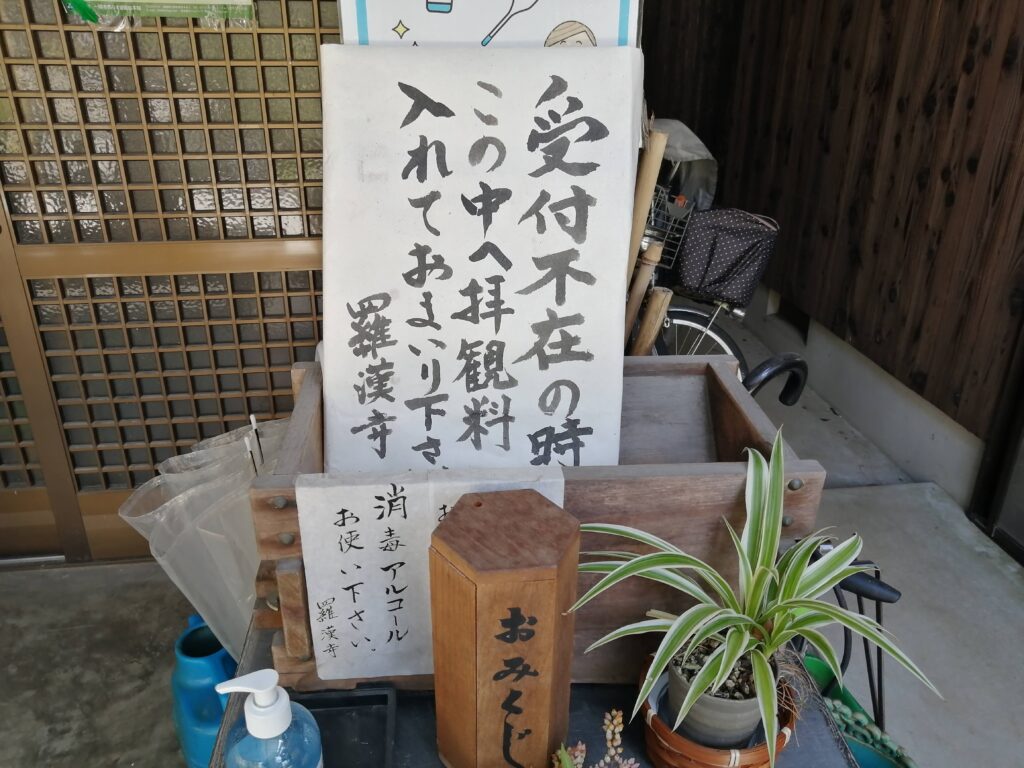 受付不在の時
この中へ拝観料
入れておまいり下さ
羅漢寺
消毒アルコール
お使い下さい、
羅漢寺
おみくじ